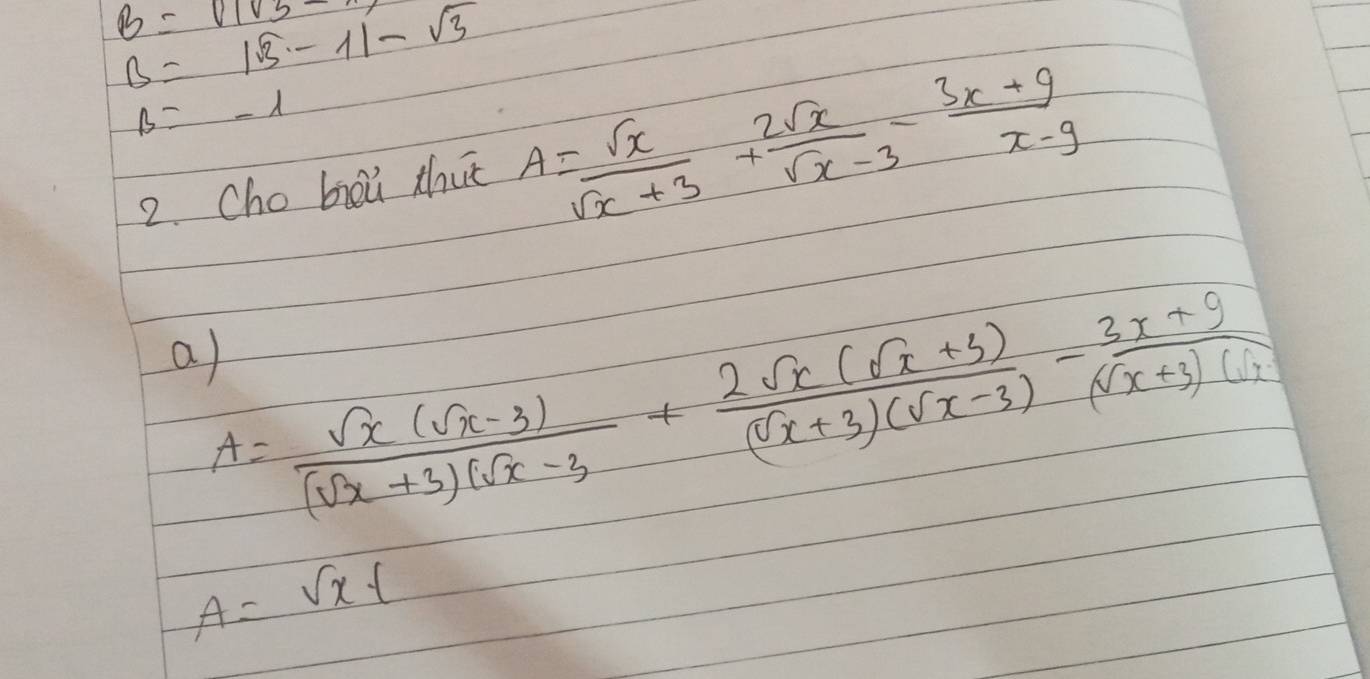 B =
B = |√3 - 1| - √3
B = -1
2. Cho biểu thức A = √x/(√x + 3) + 2√x/(√x - 3) - (3x + 9)/(x - 9)
a)
A = √x (√x - 3)/((√x + 3)(√x - 3 + 2√x (√x + 3)/((√x + 3)(√x - 3)) - (3x + 9)/((√x + 3) (√x
A = √x (